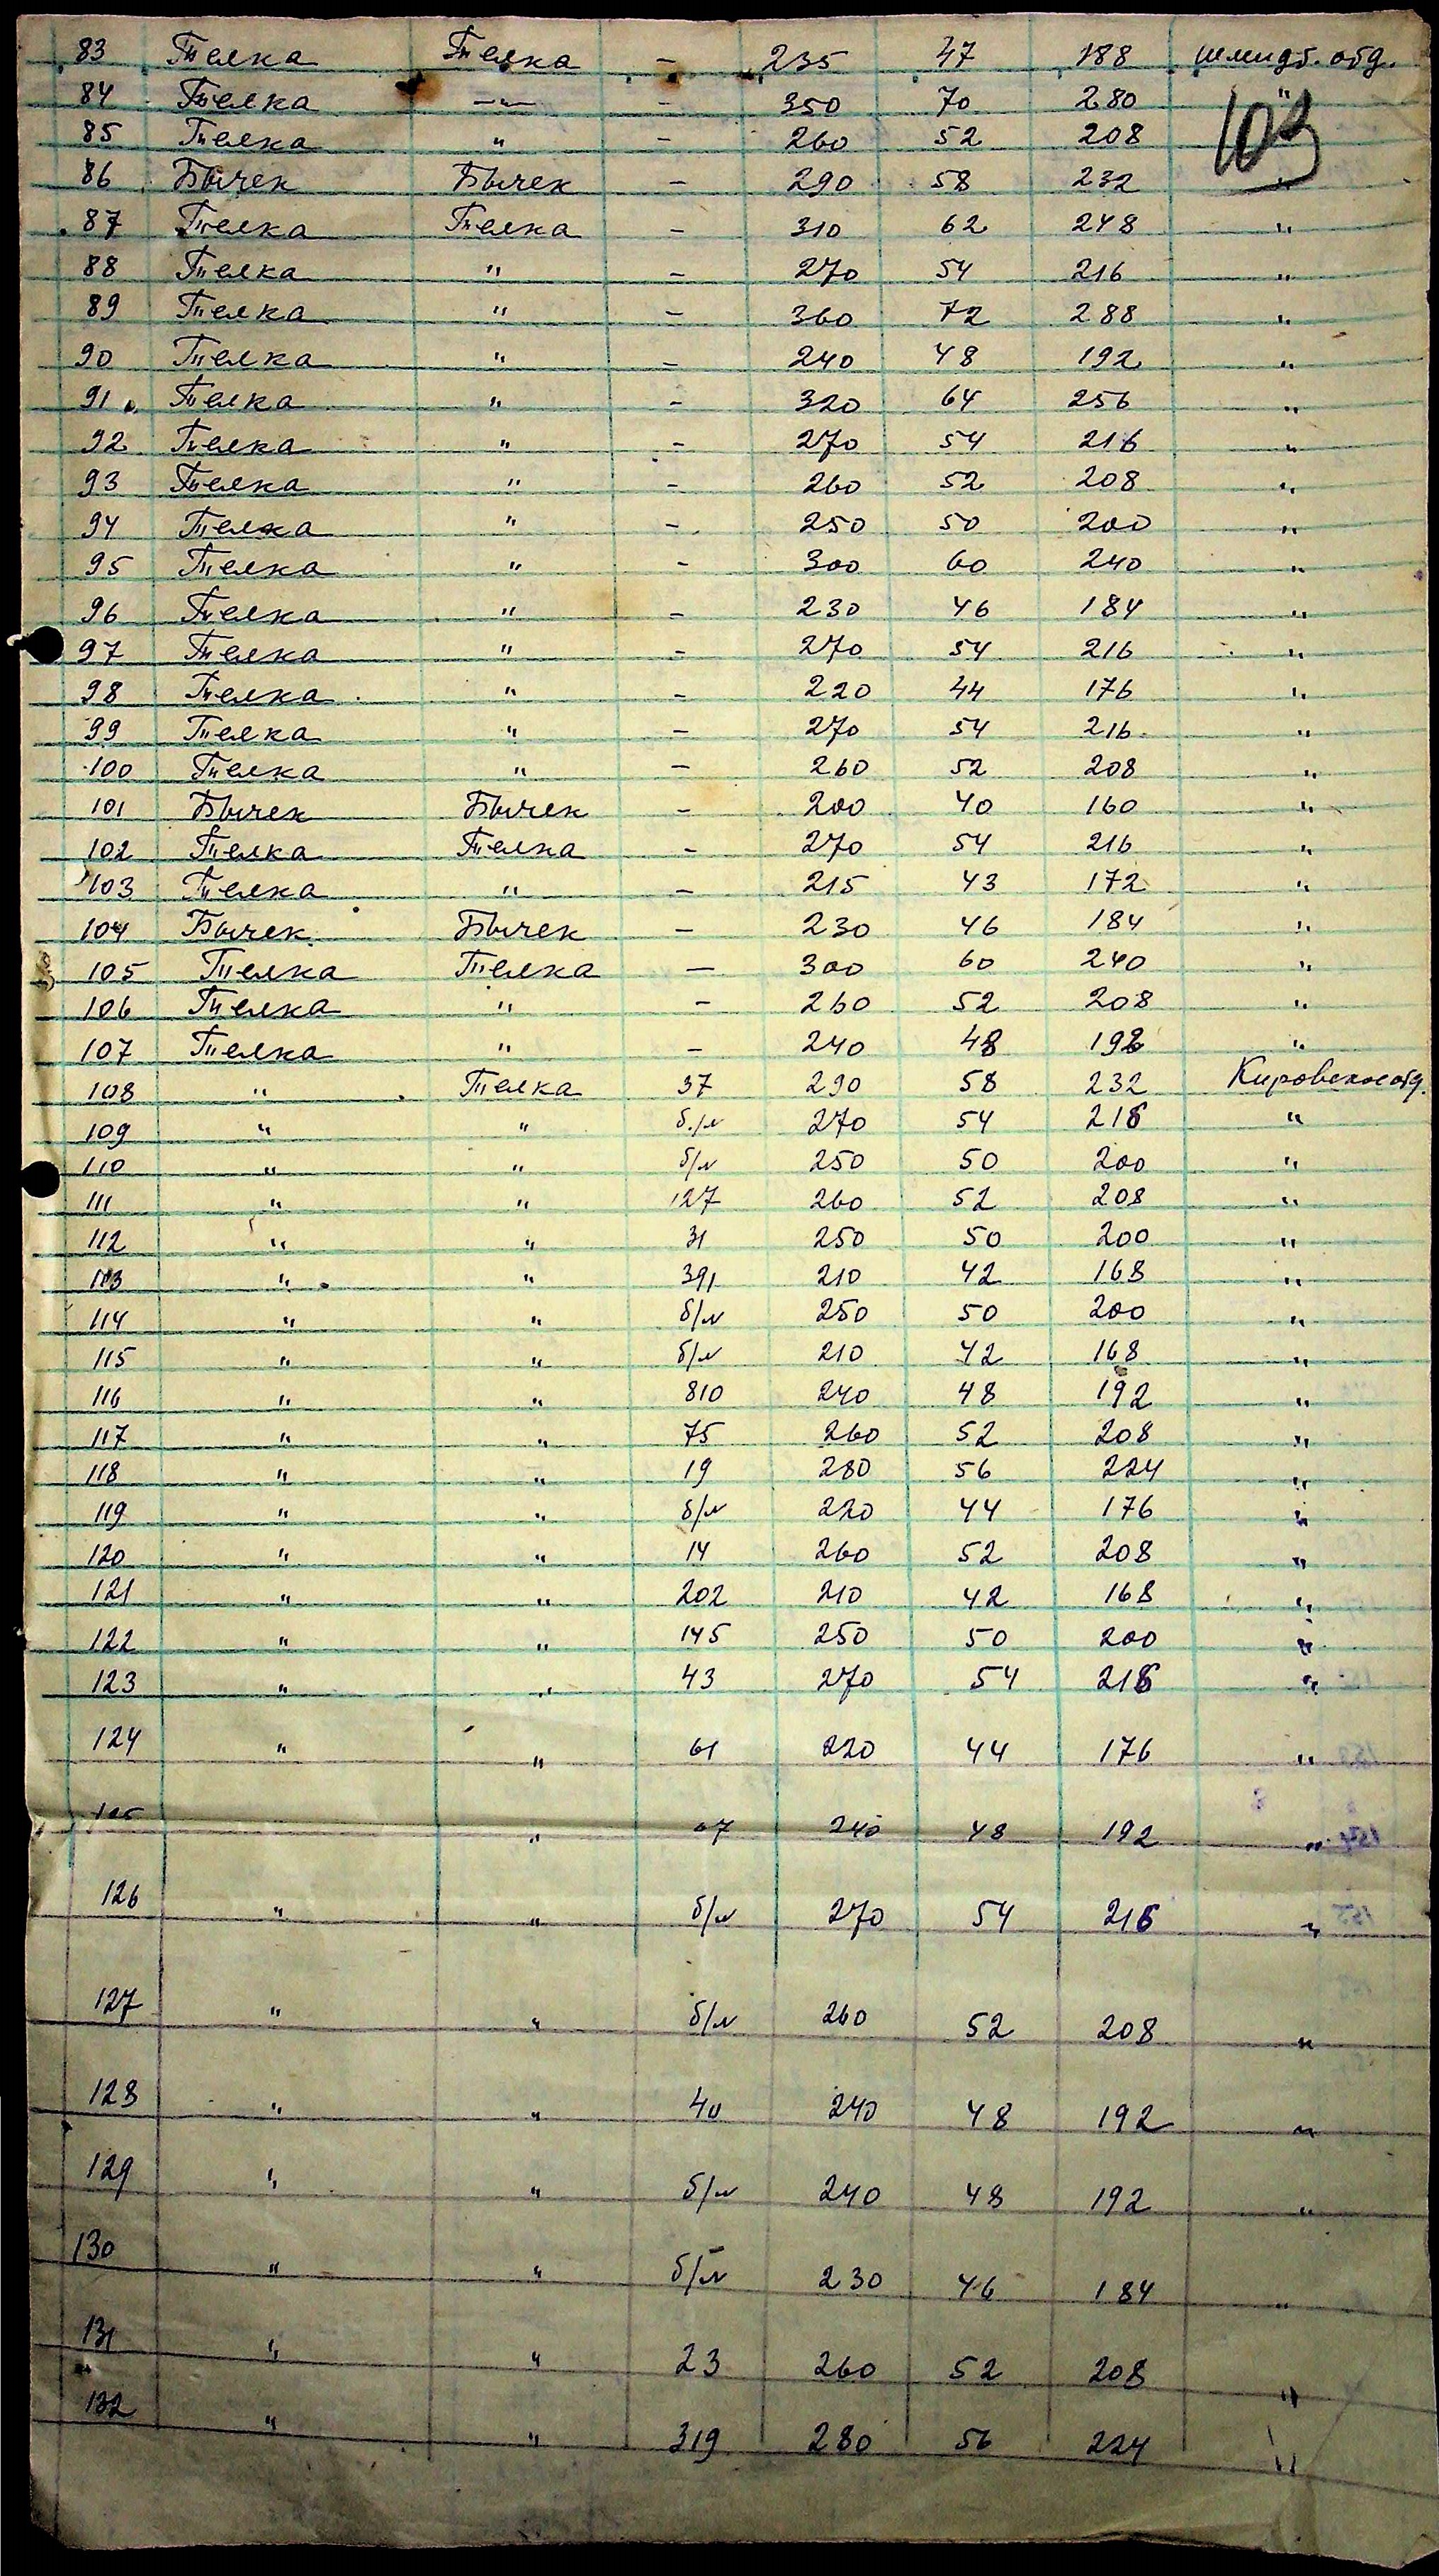 83 Телка Телка - 235 47 188 шмидт. отд.
84 Телка -"- - 350 70 280 "
103
85 Телка " - 260 52 208
86 Бычек Бычек - 290 58 232 "
87 Телка Телка - 310 62 248 "
88 Телка " - 270 54 216 "
89 Телка " - 360 72 288 "
90 Телка " - 240 48 192 "
91 Телка " - 320 64 256 "
92 Телка " - 270 54 216 "
93 Телка " - 260 52 208 "
94 Телка " - 250 50 200 "
95 Телка " - 300 60 240 "
96 Телка " - 230 46 184 "
97 Телка " - 270 54 216 "
98 Телка " - 220 44 176 "
99 Телка " - 270 54 216 "
100 Телка " - 260 52 208 "
101 Бычек Бычек - 200 40 160 "
102 Телка Телка - 270 54 216 "
103 Телка " - 215 43 172 "
104 Бычек Бычек - 230 46 184 "
105 Телка Телка - 300 60 240 "
106 Телка " - 260 52 208 "
107 Телка " - 240 48 192 "
108 " Телка 37 290 58 232 Кировское отд.
109 " " б/н 270 54 216 "
110 " " б/н 250 50 200 "
111 " " 127 260 52 208 "
112 " " 31 250 50 200 "
113 " " 391 210 42 168 "
114 " " б/н 250 50 200 "
115 " " б/н 210 42 168 "
116 " " 810 240 48 192 "
117 " " 75 260 52 208 "
118 " " 19 280 56 224 "
119 " " б/н 220 44 176 "
120 " " 14 260 52 208 "
121 " " 202 210 42 168 "
122 " " 145 250 50 200 "
123 " " 43 270 54 216 "
124 " " 61 220 44 176 "
125 " 240 48 192 "
126 " " б/н 270 54 216 "
127 " " б/н 260 52 208 "
128 " " 40 240 48 192 "
129 " " б/н 240 48 192 "
130 " " б/н 230 46 184 "
131 " " 23 260 52 208 "
132 " " 319 280 56 224 "